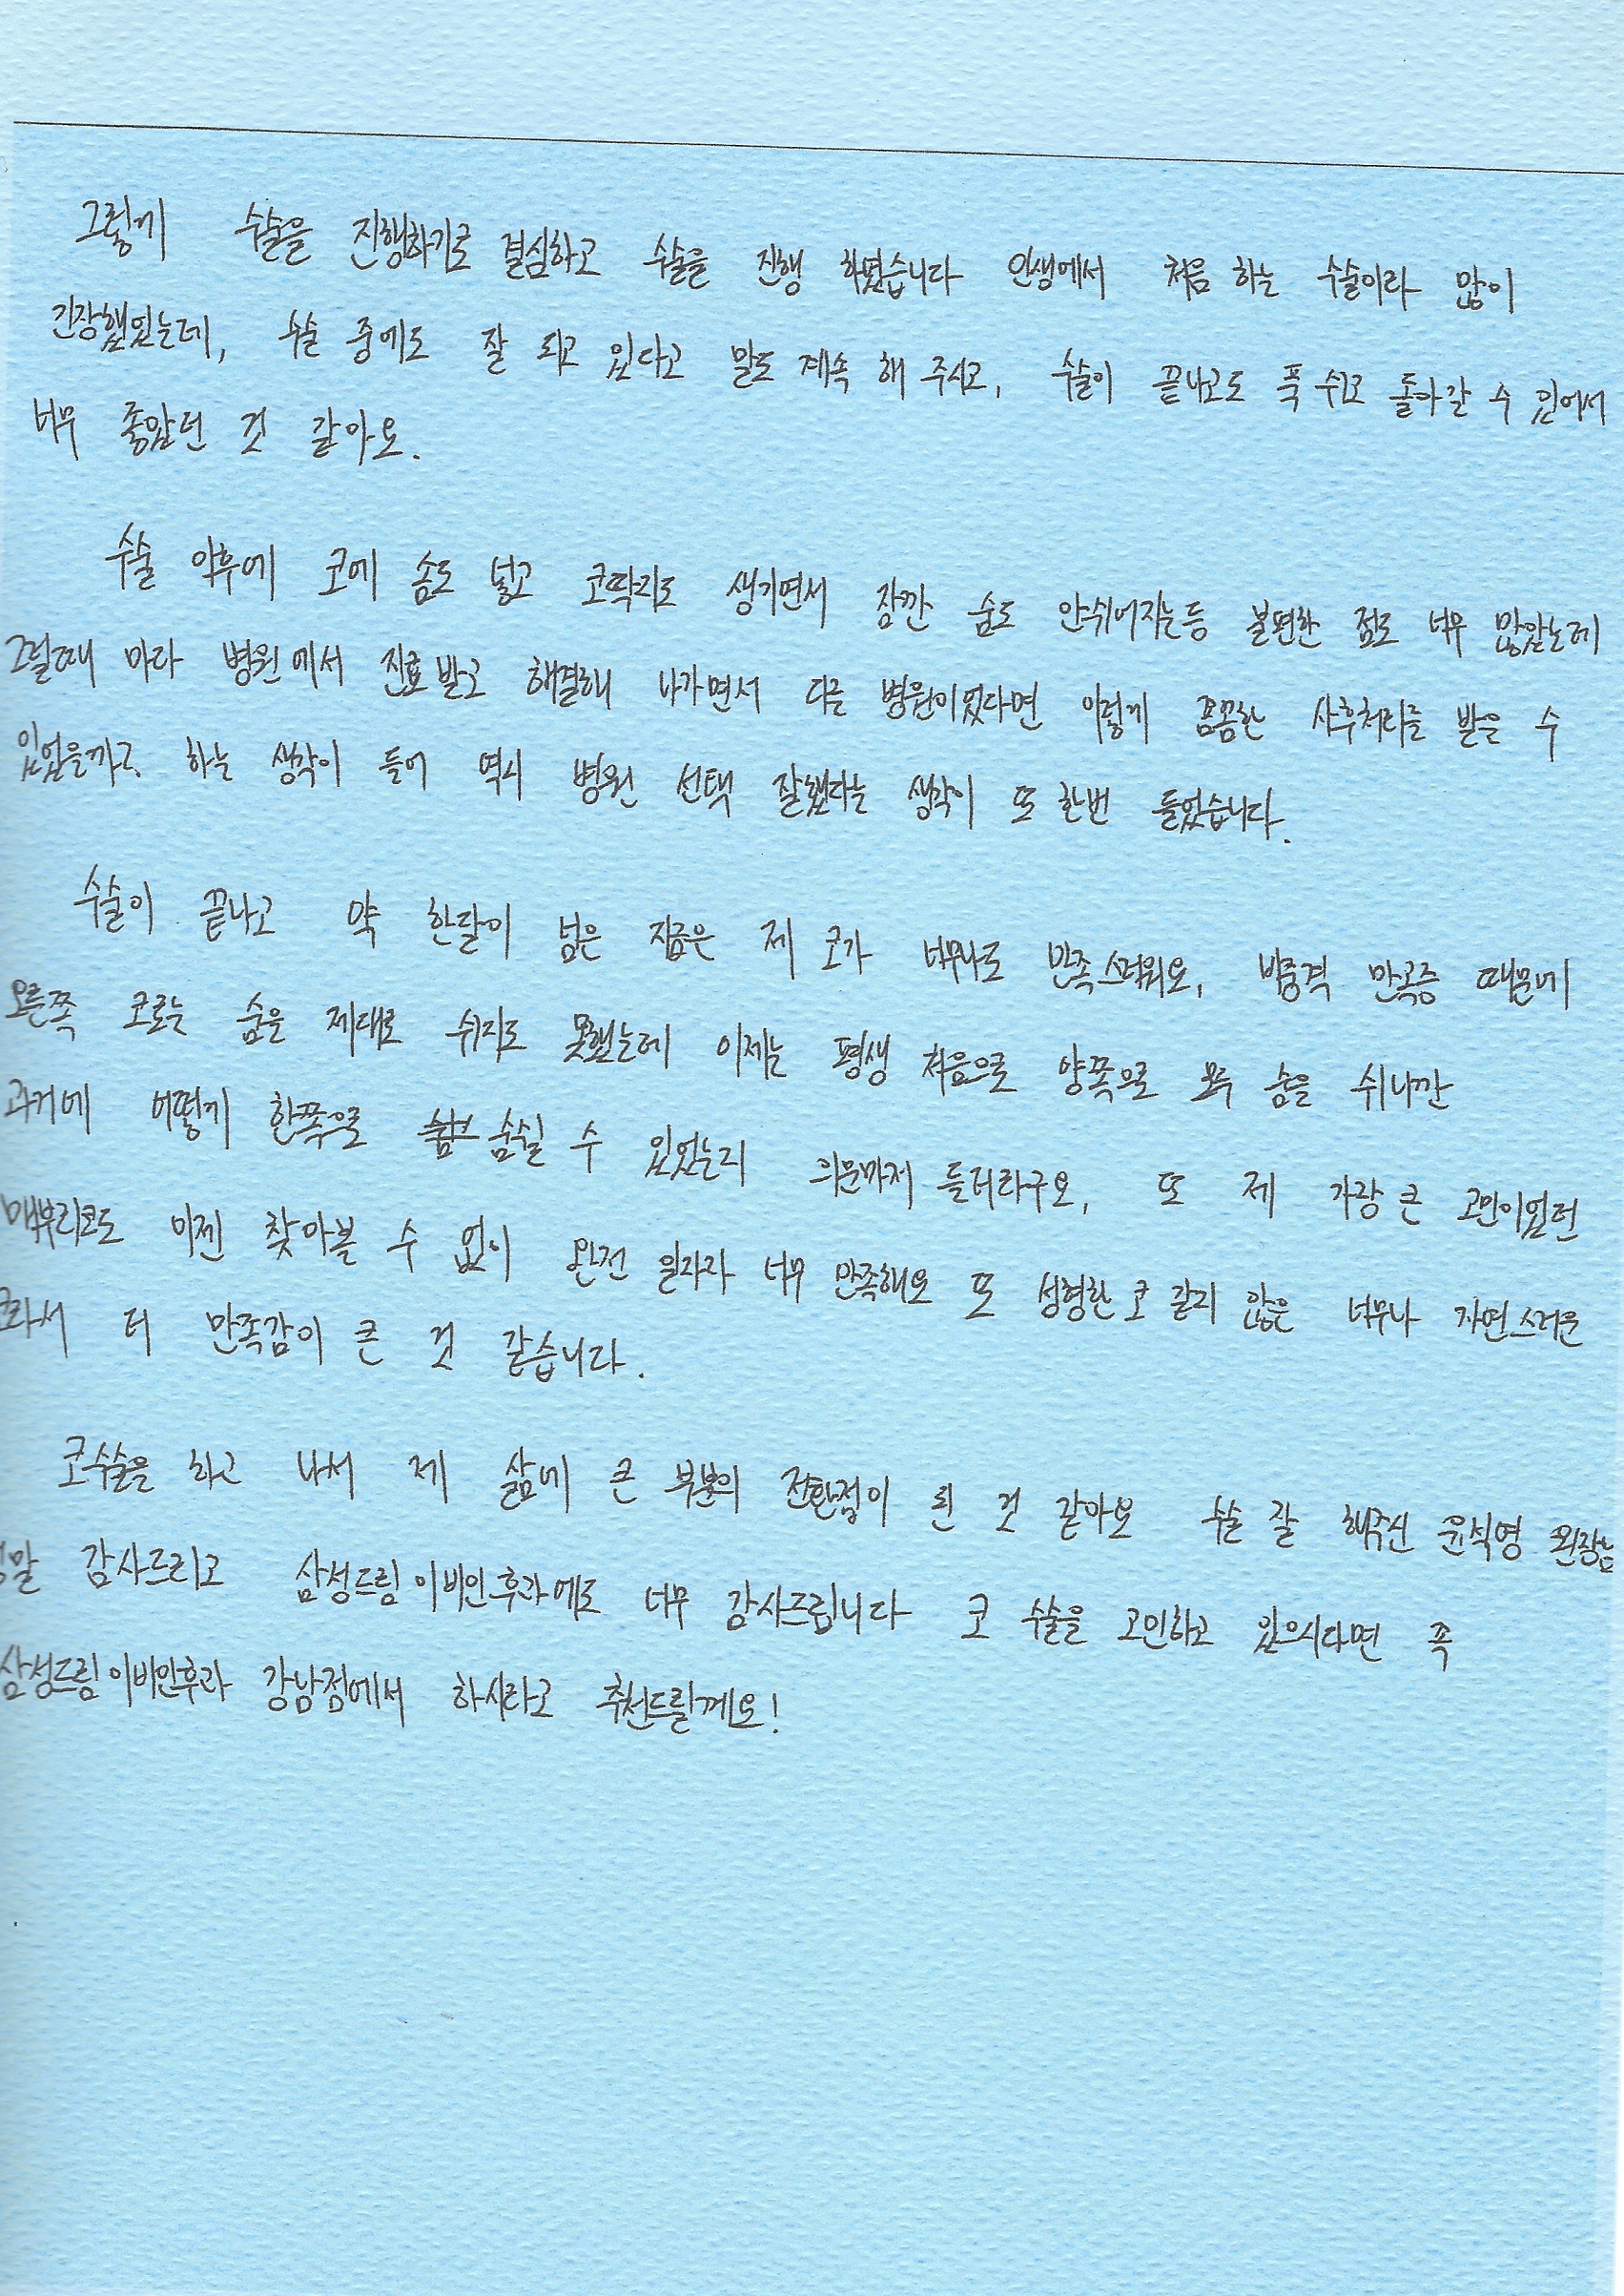 그렇게 수술을 진행하기로 결심하고 수술을 진행 하였습니다 인생에서 처음 하는 수술이라 많이
긴장했었는데, 수술 중에도 잘 되고 있다고 말도 계속 해 주시고, 수술이 끝나고도 푹 쉬고 돌아갈 수 있어서
너무 좋았던 것 같아요.
수술 이후에 코에 솜도 넣고 코딱지도 생기면서 잠깐 숨도 안쉬어지는등 불편한 점도 너무 많았는데
그럴때 마다 병원에서 진료 받고 해결해 나가면서 다른 병원이었다면 이렇게 꼼꼼한 사후처리를 받을 수
있었을까? 하는 생각이 들어 역시 병원 선택 잘했다는 생각이 또 한번 들었습니다.
수술이 끝나고 약 한달이 넘은 지금은 제 코가 너무나도 만족스러워요, 비중격 만곡증 때문에
오른쪽 코로는 숨을 제대로 쉬지도 못했는데 이제는 평생 처음으로 양쪽으로 모두 숨을 쉬니깐
과거에 어떻게 한쪽으로 숨쉴 수 있었는지 의문마저 들더라구요, 또 제 가장 큰 고민이었던
매부리코도 이젠 찾아볼 수 없이 완전 일자라 너무 만족해요 또 성형한 코 같지 않은 너무나 자연스러운
코라서 더 만족감이 큰 것 같습니다.
코수술을 하고 나서 제 삶에 큰 부분의 전환점이 된 것 같아요 수술 잘 해주신 윤식영 원장님
정말 감사드리고 삼성드림이비인후과에도 너무 감사드립니다 코 수술을 고민하고 있으시다면 꼭
삼성드림이비인후과 강남점에서 하시라고 추천드릴게요!